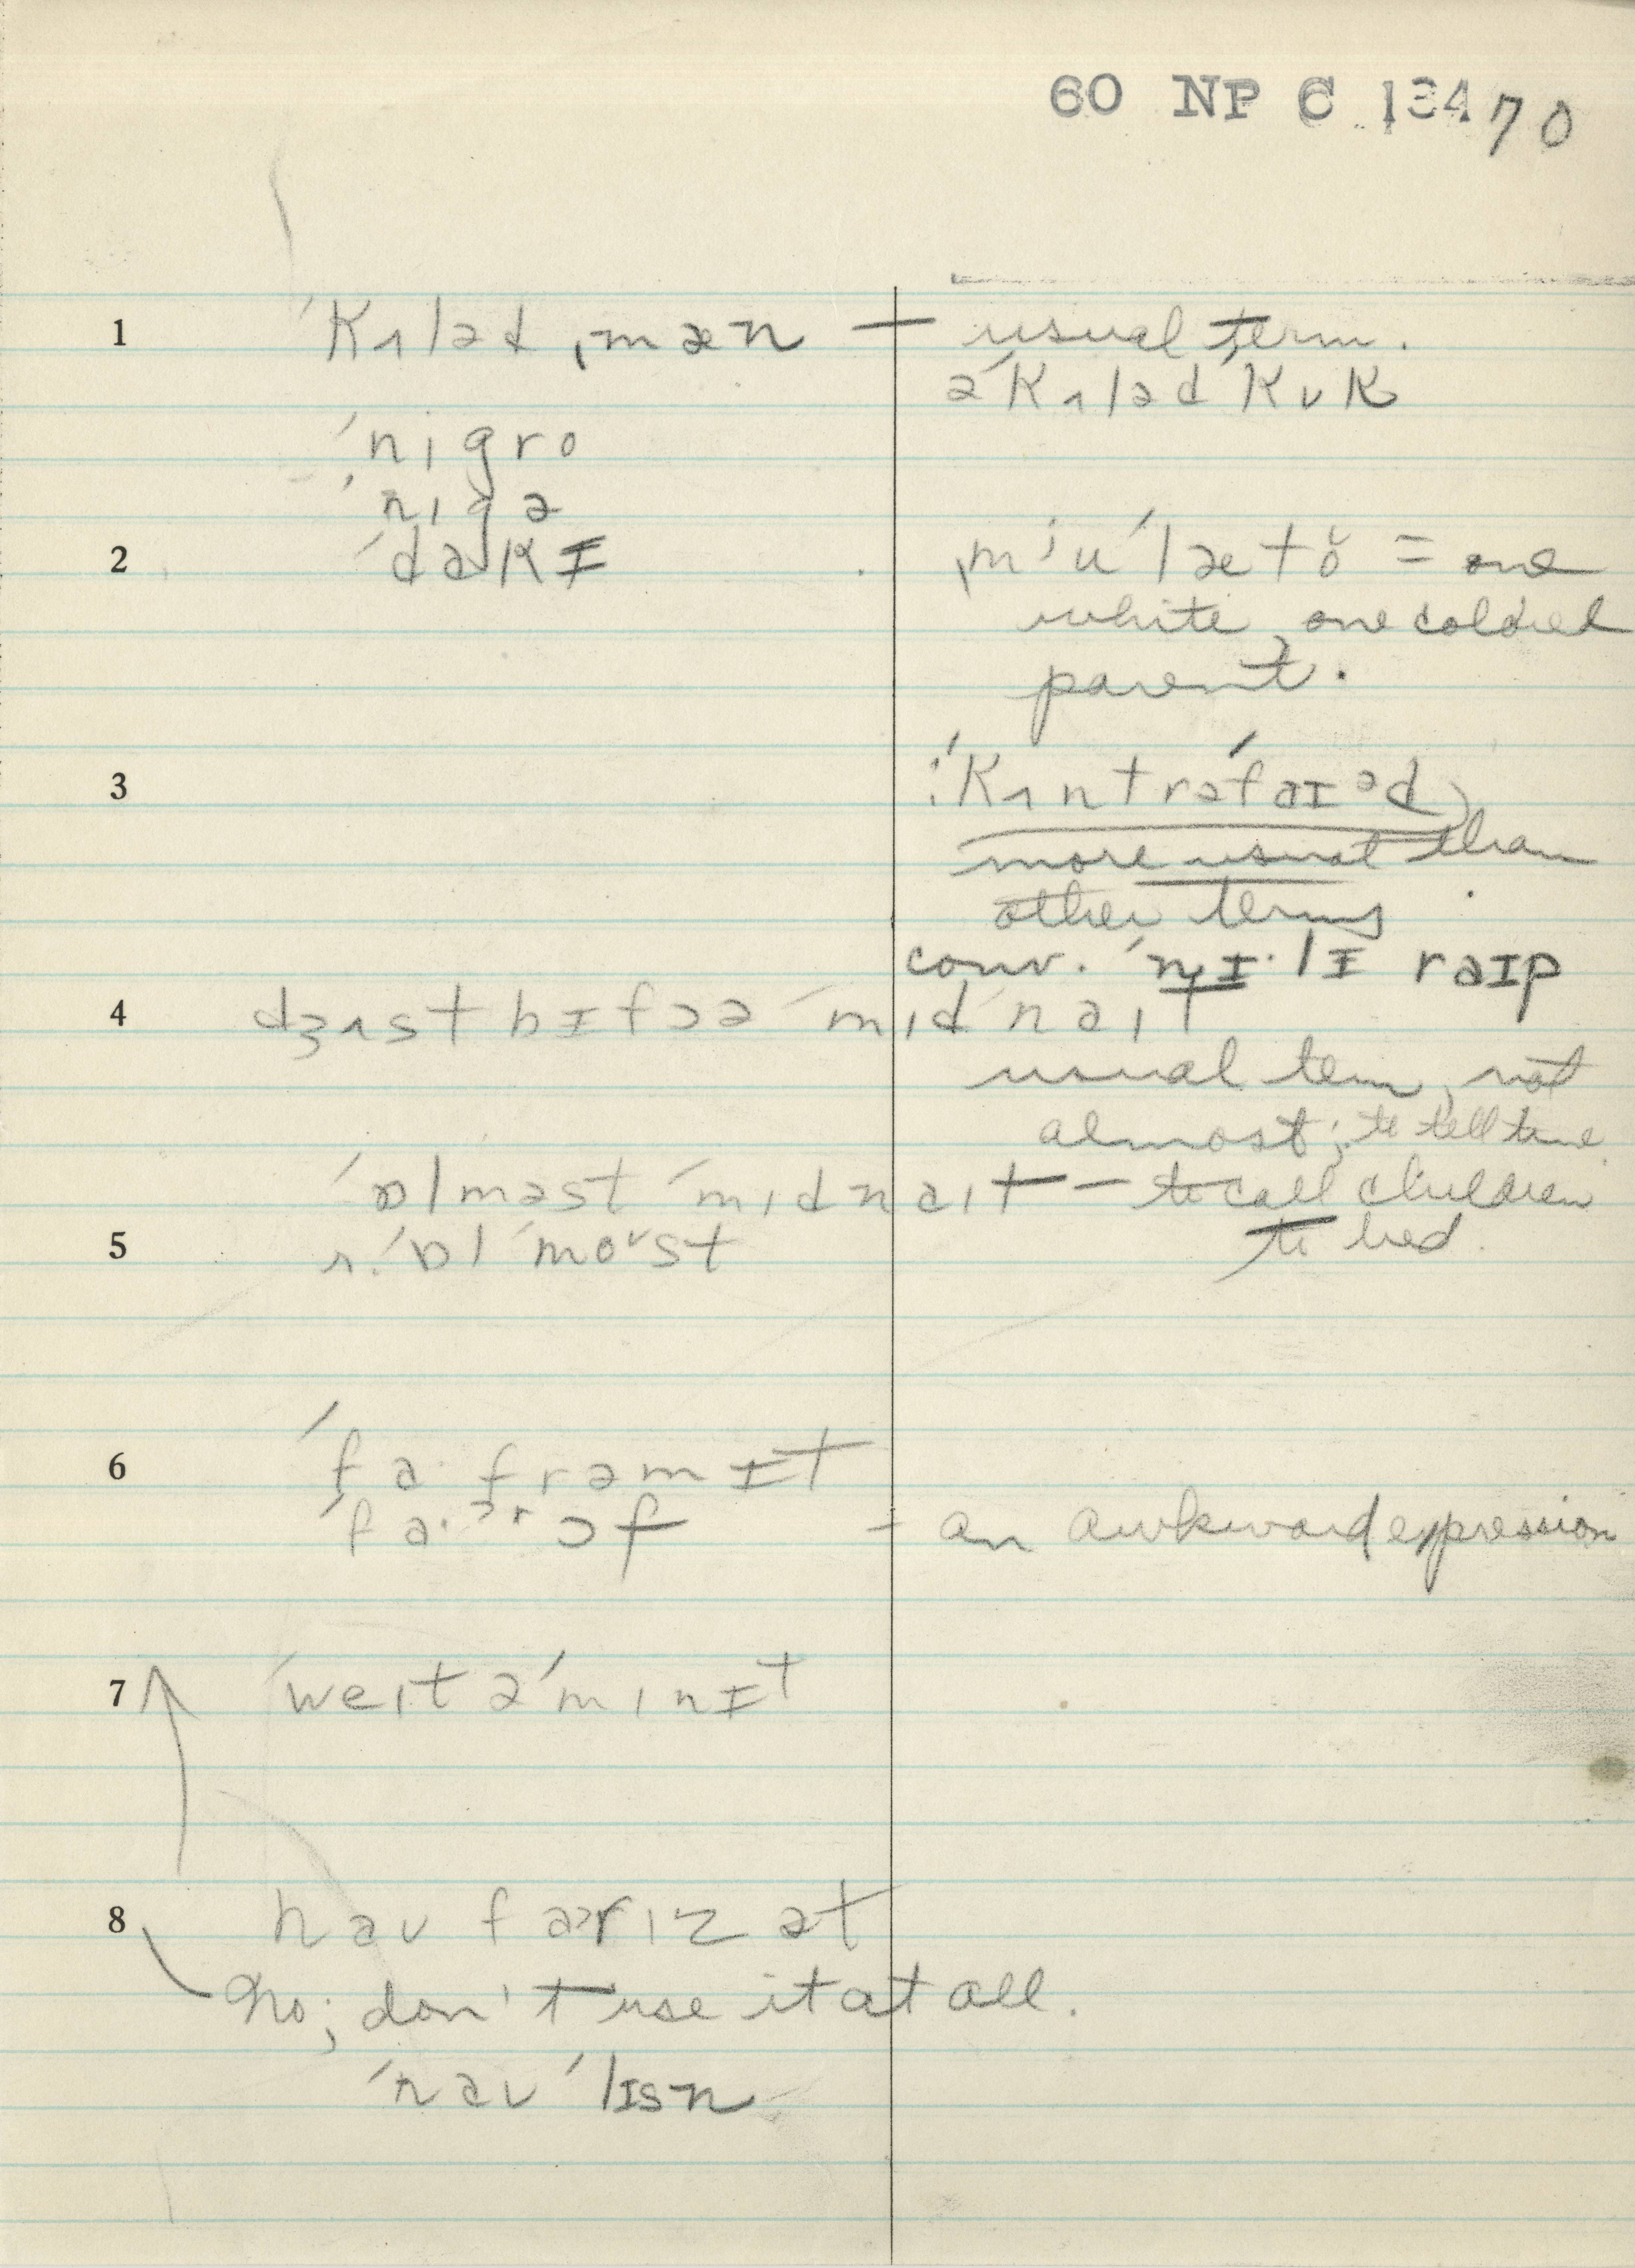 60 NP C 134 70
1 ˈkʌləd ˌmæn — usual term.
əˈkʌləd ˈkʊk
ˈnigro
ˈnigə
2 ˈdakɪ
ˌmʲuˈlætŏ = one
white, one colored
parent.
3 !ˈkʌntrəˈfaɪᵊd
more usual than
other terms
conv. ˈnɪ·lɪ raɪp
4 dʒʌst bɪfɔə ˈmidˈnait
usual term, not
almost; to tell time.
ˈɒlməst ˈmidnait — to call children
5 r. ˈɒlˈmoᶷst to bed.
6 ˈfa· frəm ɪt
ˈfa·ᵊʳ ɔf = an awkward expression
7 ˈweit əˈminɪt
8 hau far iz ət
No; don't use it at all.
ˈnau ˈlɪsn